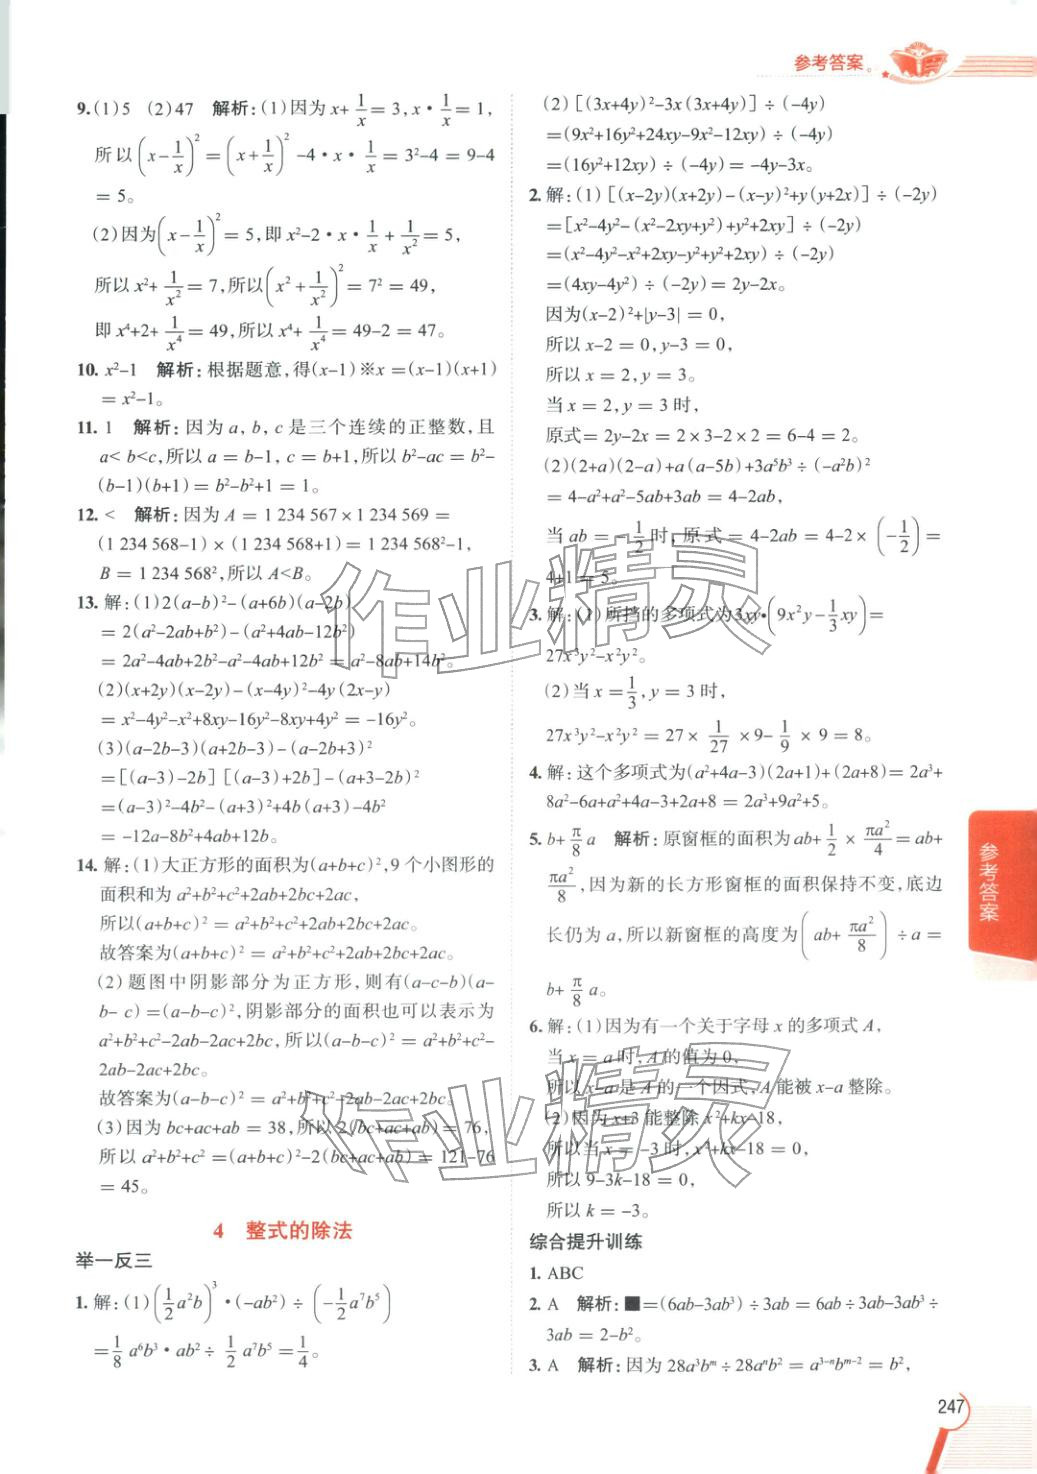 参考答案。
9.(1)5 (2)47 解析:(1)因为x+1/x=3,x·1/x=1,
所以(x-1/x)²=(x+1/x)²-4·x·1/x=3²-4=9-4
=5。
(2)因为(x-1/x)²=5,即x²-2·x·1/x+1/x²=5,
所以x²+1/x²=7,所以(x²+1/x²)²=7²=49,
即x⁴+2+1/x⁴=49,所以x⁴+1/x⁴=49-2=47。
10. x²-1 解析:根据题意,得(x-1)※x=(x-1)(x+1)
=x²-1。
11. 1 解析:因为a,b,c是三个连续的正整数,且
a<b<c,所以a=b-1,c=b+1,所以b²-ac=b²-
(b-1)(b+1)=b²-b²+1=1。
12. < 解析:因为A=1 234 567×1 234 569=
(1 234 568-1)×(1 234 568+1)=1 234 568²-1,
B=1 234 568²,所以A<B。
13. 解:(1)2(a-b)²-(a+6b)(a-2b)
=2(a²-2ab+b²)-(a²+4ab-12b²)
=2a²-4ab+2b²-a²-4ab+12b²=a²-8ab+14b²。
(2)(x+2y)(x-2y)-(x-4y)²-4y(2x-y)
=x²-4y²-x²+8xy-16y²-8xy+4y²=-16y²。
(3)(a-2b-3)(a+2b-3)-(a-2b+3)²
=[(a-3)-2b][(a-3)+2b]-(a+3-2b)²
=(a-3)²-4b²-(a+3)²+4b(a+3)-4b²
=-12a-8b²+4ab+12b。
14. 解:(1)大正方形的面积为(a+b+c)²,9个小图形的
面积和为a²+b²+c²+2ab+2bc+2ac,
所以(a+b+c)²=a²+b²+c²+2ab+2bc+2ac。
故答案为(a+b+c)²=a²+b²+c²+2ab+2bc+2ac。
(2)题图中阴影部分为正方形,则有(a-c-b)(a-
b-c)=(a-b-c)²,阴影部分的面积也可以表示为
a²+b²+c²-2ab-2ac+2bc,所以(a-b-c)²=a²+b²+c²-
2ab-2ac+2bc。
故答案为(a-b-c)²=a²+b²+c²-2ab-2ac+2bc。
(3)因为bc+ac+ab=38,所以2(bc+ac+ab)=76,
所以a²+b²+c²=(a+b+c)²-2(bc+ac+ab)=121-76
=45。
4 整式的除法
举一反三
1. 解:(1)(1/2a²b)³·(-ab²)÷(-1/2a⁷b⁵)
=1/8a⁶b³·ab²÷1/2a⁷b⁵=1/4。
(2)[(3x+4y)²-3x(3x+4y)]÷(-4y)
=(9x²+16y²+24xy-9x²-12xy)÷(-4y)
=(16y²+12xy)÷(-4y)=-4y-3x。
2. 解:(1)[(x-2y)(x+2y)-(x-y)²+y(y+2x)]÷(-2y)
=[x²-4y²-(x²-2xy+y²)+y²+2xy]÷(-2y)
=(x²-4y²-x²+2xy-y²+y²+2xy)÷(-2y)
=(4xy-4y²)÷(-2y)=2y-2x。
因为(x-2)²+|y-3|=0,
所以x-2=0,y-3=0,
所以x=2,y=3。
当x=2,y=3时,
原式=2y-2x=2×3-2×2=6-4=2。
(2)(2+a)(2-a)+a(a-5b)+3a⁵b³÷(-a²b)²
=4-a²+a²-5ab+3ab=4-2ab,
当ab=-1/2时,原式=4-2ab=4-2×(-1/2)=
4+1=5。
3. 解:(1)所挡的多项式为3xy·(9x²y-1/3xy)=
27x³y²-x²y²。
(2)当x=1/3,y=3时,
27x³y²-x²y²=27×1/27×9-1/9×9=8。
4. 解:这个多项式为(a²+4a-3)(2a+1)+(2a+8)=2a³+
8a²-6a+a²+4a-3+2a+8=2a³+9a²+5。
5. b+π/8a 解析:原窗框的面积为ab+1/2×πa²/4=ab+
πa²/8,因为新的长方形窗框的面积保持不变,底边
长仍为a,所以新窗框的高度为(ab+πa²/8)÷a=
b+π/8a。
6. 解:(1)因为有一个关于字母x的多项式A,
当x=a时,A的值为0,
所以x-a是A的一个因式,A能被x-a整除。
(2)因为x+3能整除x²+kx-18,
所以当x=-3时,x²+kx-18=0,
所以9-3k-18=0,
所以k=-3。
综合提升训练
1. ABC
2. A 解析:■=(6ab-3ab³)÷3ab=6ab÷3ab-3ab³÷
3ab=2-b²。
3. A 解析:因为28a³bᵐ÷28aⁿb²=a³⁻ⁿbᵐ⁻²=b²,
参考答案
247
作业精灵
作业精灵